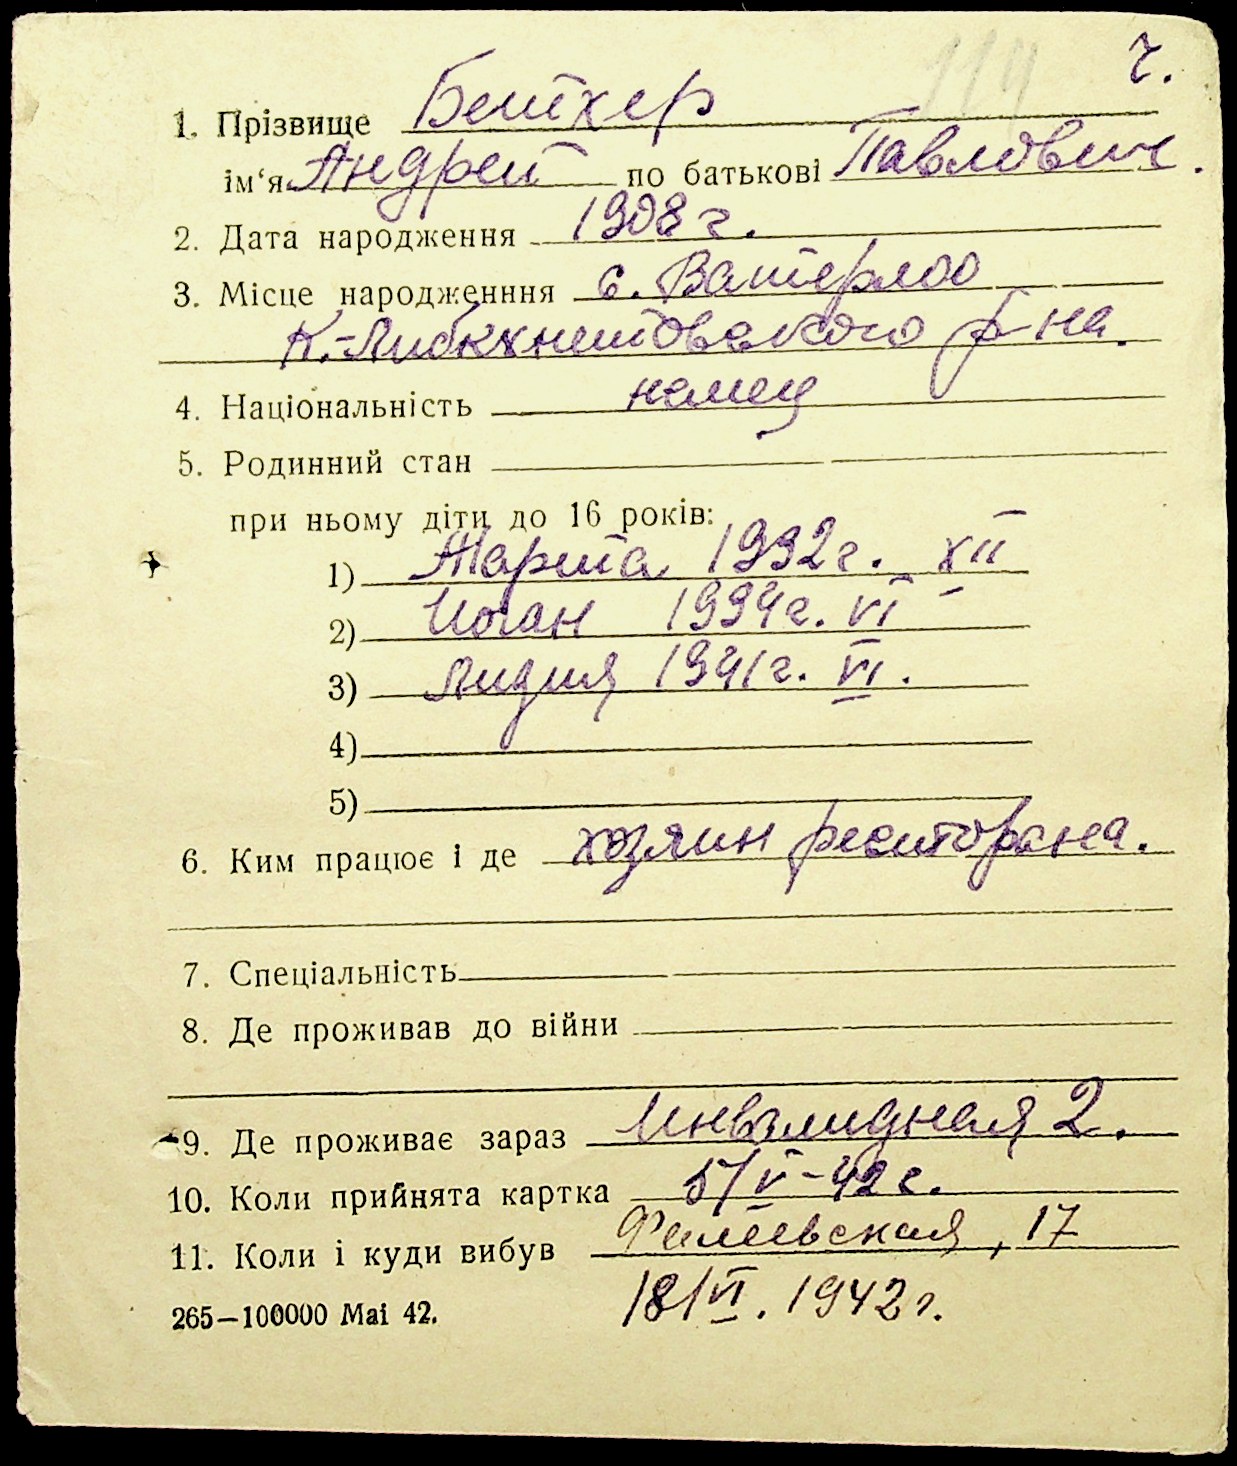 114 г.
1. Прізвище Бейхер
ім‘я Андрей по батькові Павлович.
2. Дата народження 1908 г.
3. Місце народженння с. Ватерлоо
К.-Либкхнетовского р-на.
4. Національність немец
5. Родинний стан
при ньому діти до 16 років:
1) Марта 1932 г. XII
2) Иоган 1934 г. VI
3) Лидия 1941 г. VI.
4)
5)
6. Ким працює і де хозяин ресторана.
7. Спеціальність
8. Де проживав до війни
9. Де проживає зараз Инвалидная 2.
10. Коли прийнята картка 5/V-42 г.
11. Коли і куди вибув Фалеевская, 17
265—100000 Mai 42. 18/VI. 1942 г.